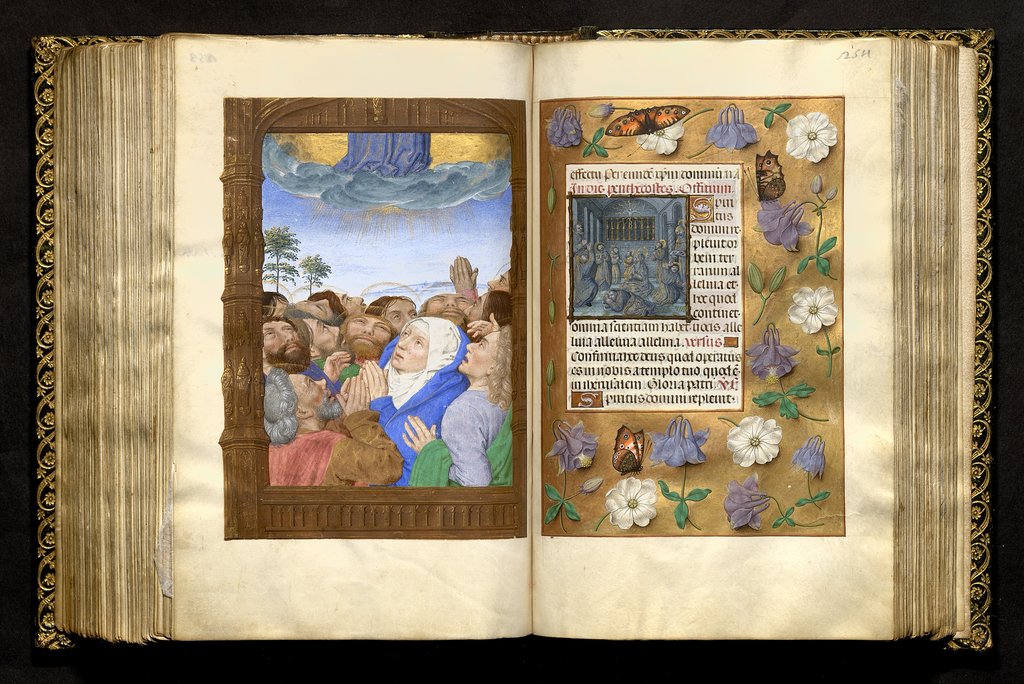 254
effectu per eundē xp̄m
In die penthecostes. Offitium.
Spiri
tus
domini re
pleuit or
bem ter
rarum al
leluia et
hoc quod
continet
omnia scientiam habet uocis alle
luia alleluia alleluia. versus
Confirma hoc deus quod operatus
es in nobis a templo tuo quod ē
in iherusalem Gloria patri
Spiritus domini repleuit.